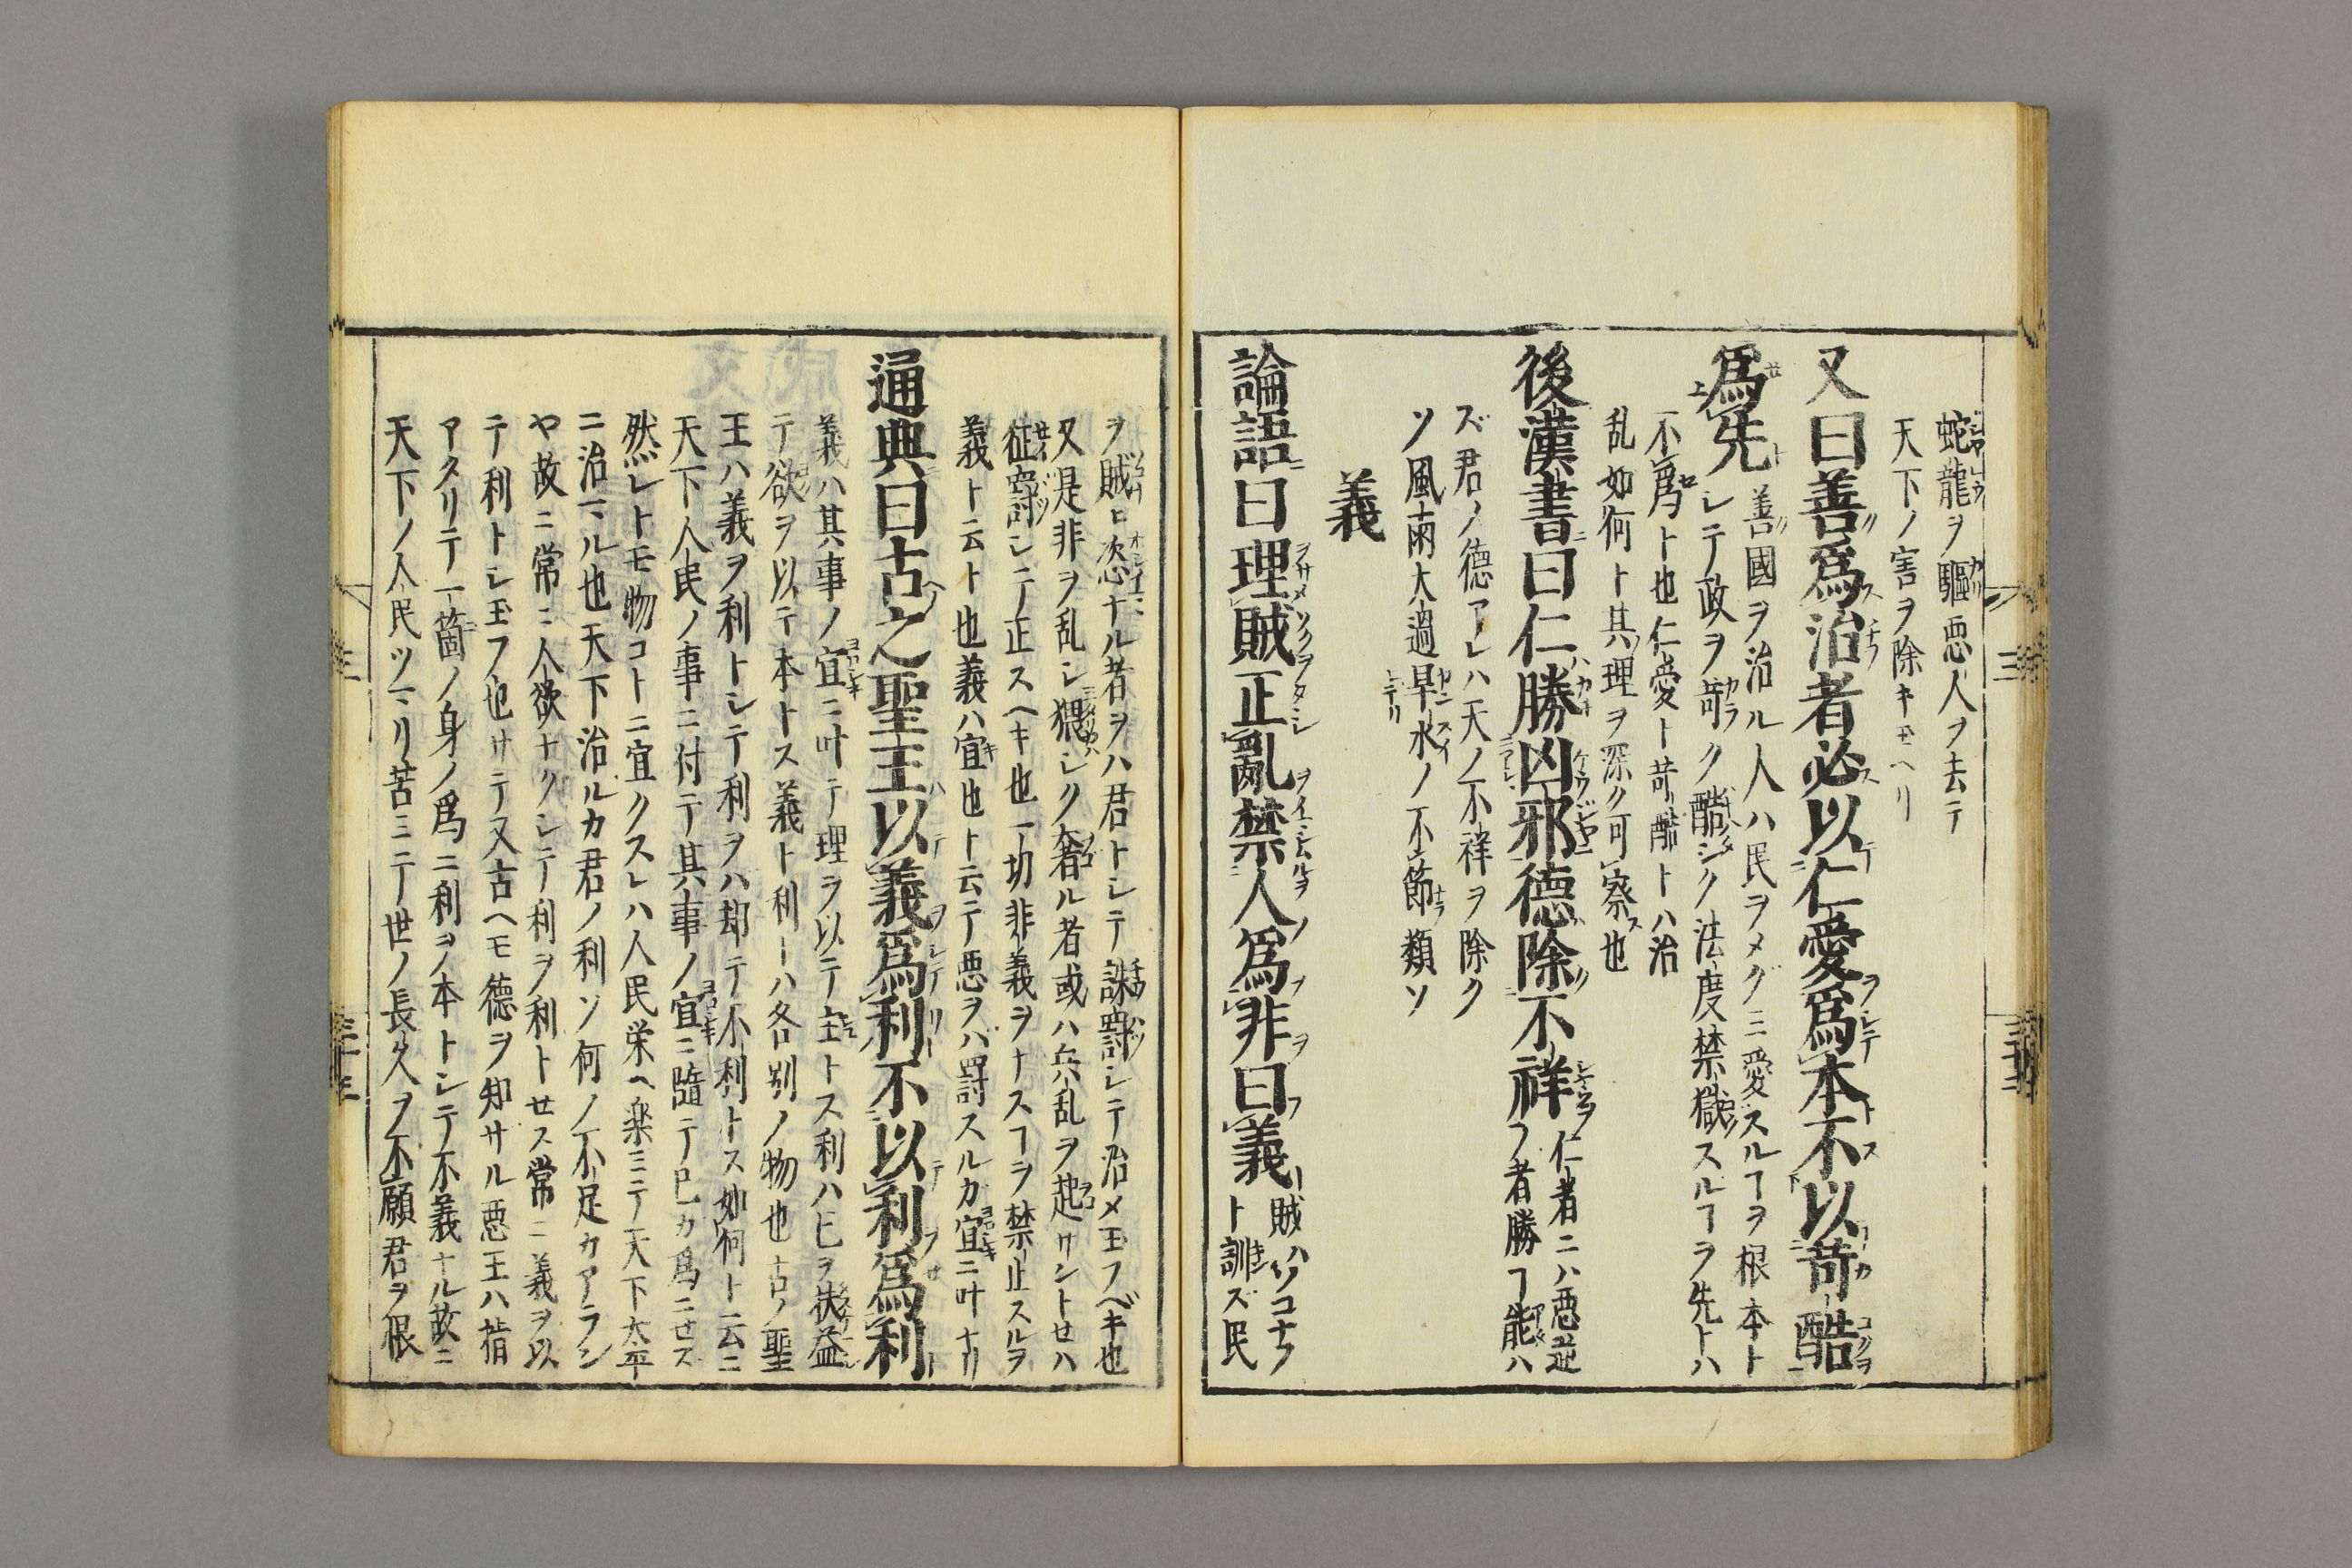 蛇龍ヲ驅悪人ヲ去テ
天下ノ害ヲ除キ玉ヘリ
又曰善爲治者必以仁愛爲本不以苛酷
爲先善國ヲ治ル人ハ民ヲメグミ愛スルヿヲ根本ト
シテ政ヲ苛ク酷シク法度禁獄スルヿヲ先トハ
不爲ト也仁愛ト苛酷トハ治
乱如何ト其理ヲ深ク可察也
後漢書曰仁勝凶邪德除不祥仁者ニハ悪逆
フ者勝ヿ能ハ
ズ君ノ德アレハ天ノ不祥ヲ除ク
ソ風雨大過旱水ノ不節類ソ
義
論語曰理賊正亂禁人爲非曰義賊ハソコナフ
ト訓ズ民
ヲ賊ヒ恣ナル者ヲハ君トシテ誅罸シテ治メ玉フベキ也
又是非ヲ乱シ猥シク奢ル者或ハ兵乱ヲ起サントセハ
征罸シテ正スヘキ也一切非義ヲナスヿヲ禁止スルヲ
義ト云ト也義ハ宜也ト云テ悪ヲバ罸スルカ宜ニ叶ナリ
通典曰古之聖王以義爲利不以利爲利
義ハ其事ノ宜ニ叶テ理ヲ以テ主トス利ハ己ヲ扶益
テ欲ヲ以テ本トス義ト利トハ各別ノ物也古ノ聖
王ハ義ヲ利トシテ利ヲハ却テ不利トス如何ト云ニ
天下人民ノ事ニ付テ其事ノ宜ニ隨テ己カ爲ニセス
然レトモ物コトニ宜クスレハ人民栄ヘ楽ミテ天下太平
ニ治マル也天下治ルカ君ノ利ソ何ノ不足カアラン
や故ニ常ニ人欲ナクシテ利ヲ利トせス常ニ義ヲ以
テ利トシ玉フ也サテ又古ヘモ德ヲ知サル悪王ハ指
アタリテ一箇ノ身ノ爲ニ利ヲノ本トシテ不義ナル故ニ
天下ノ人民ツマリ苦ミテ世ノ長久ヲ不願君ヲ恨